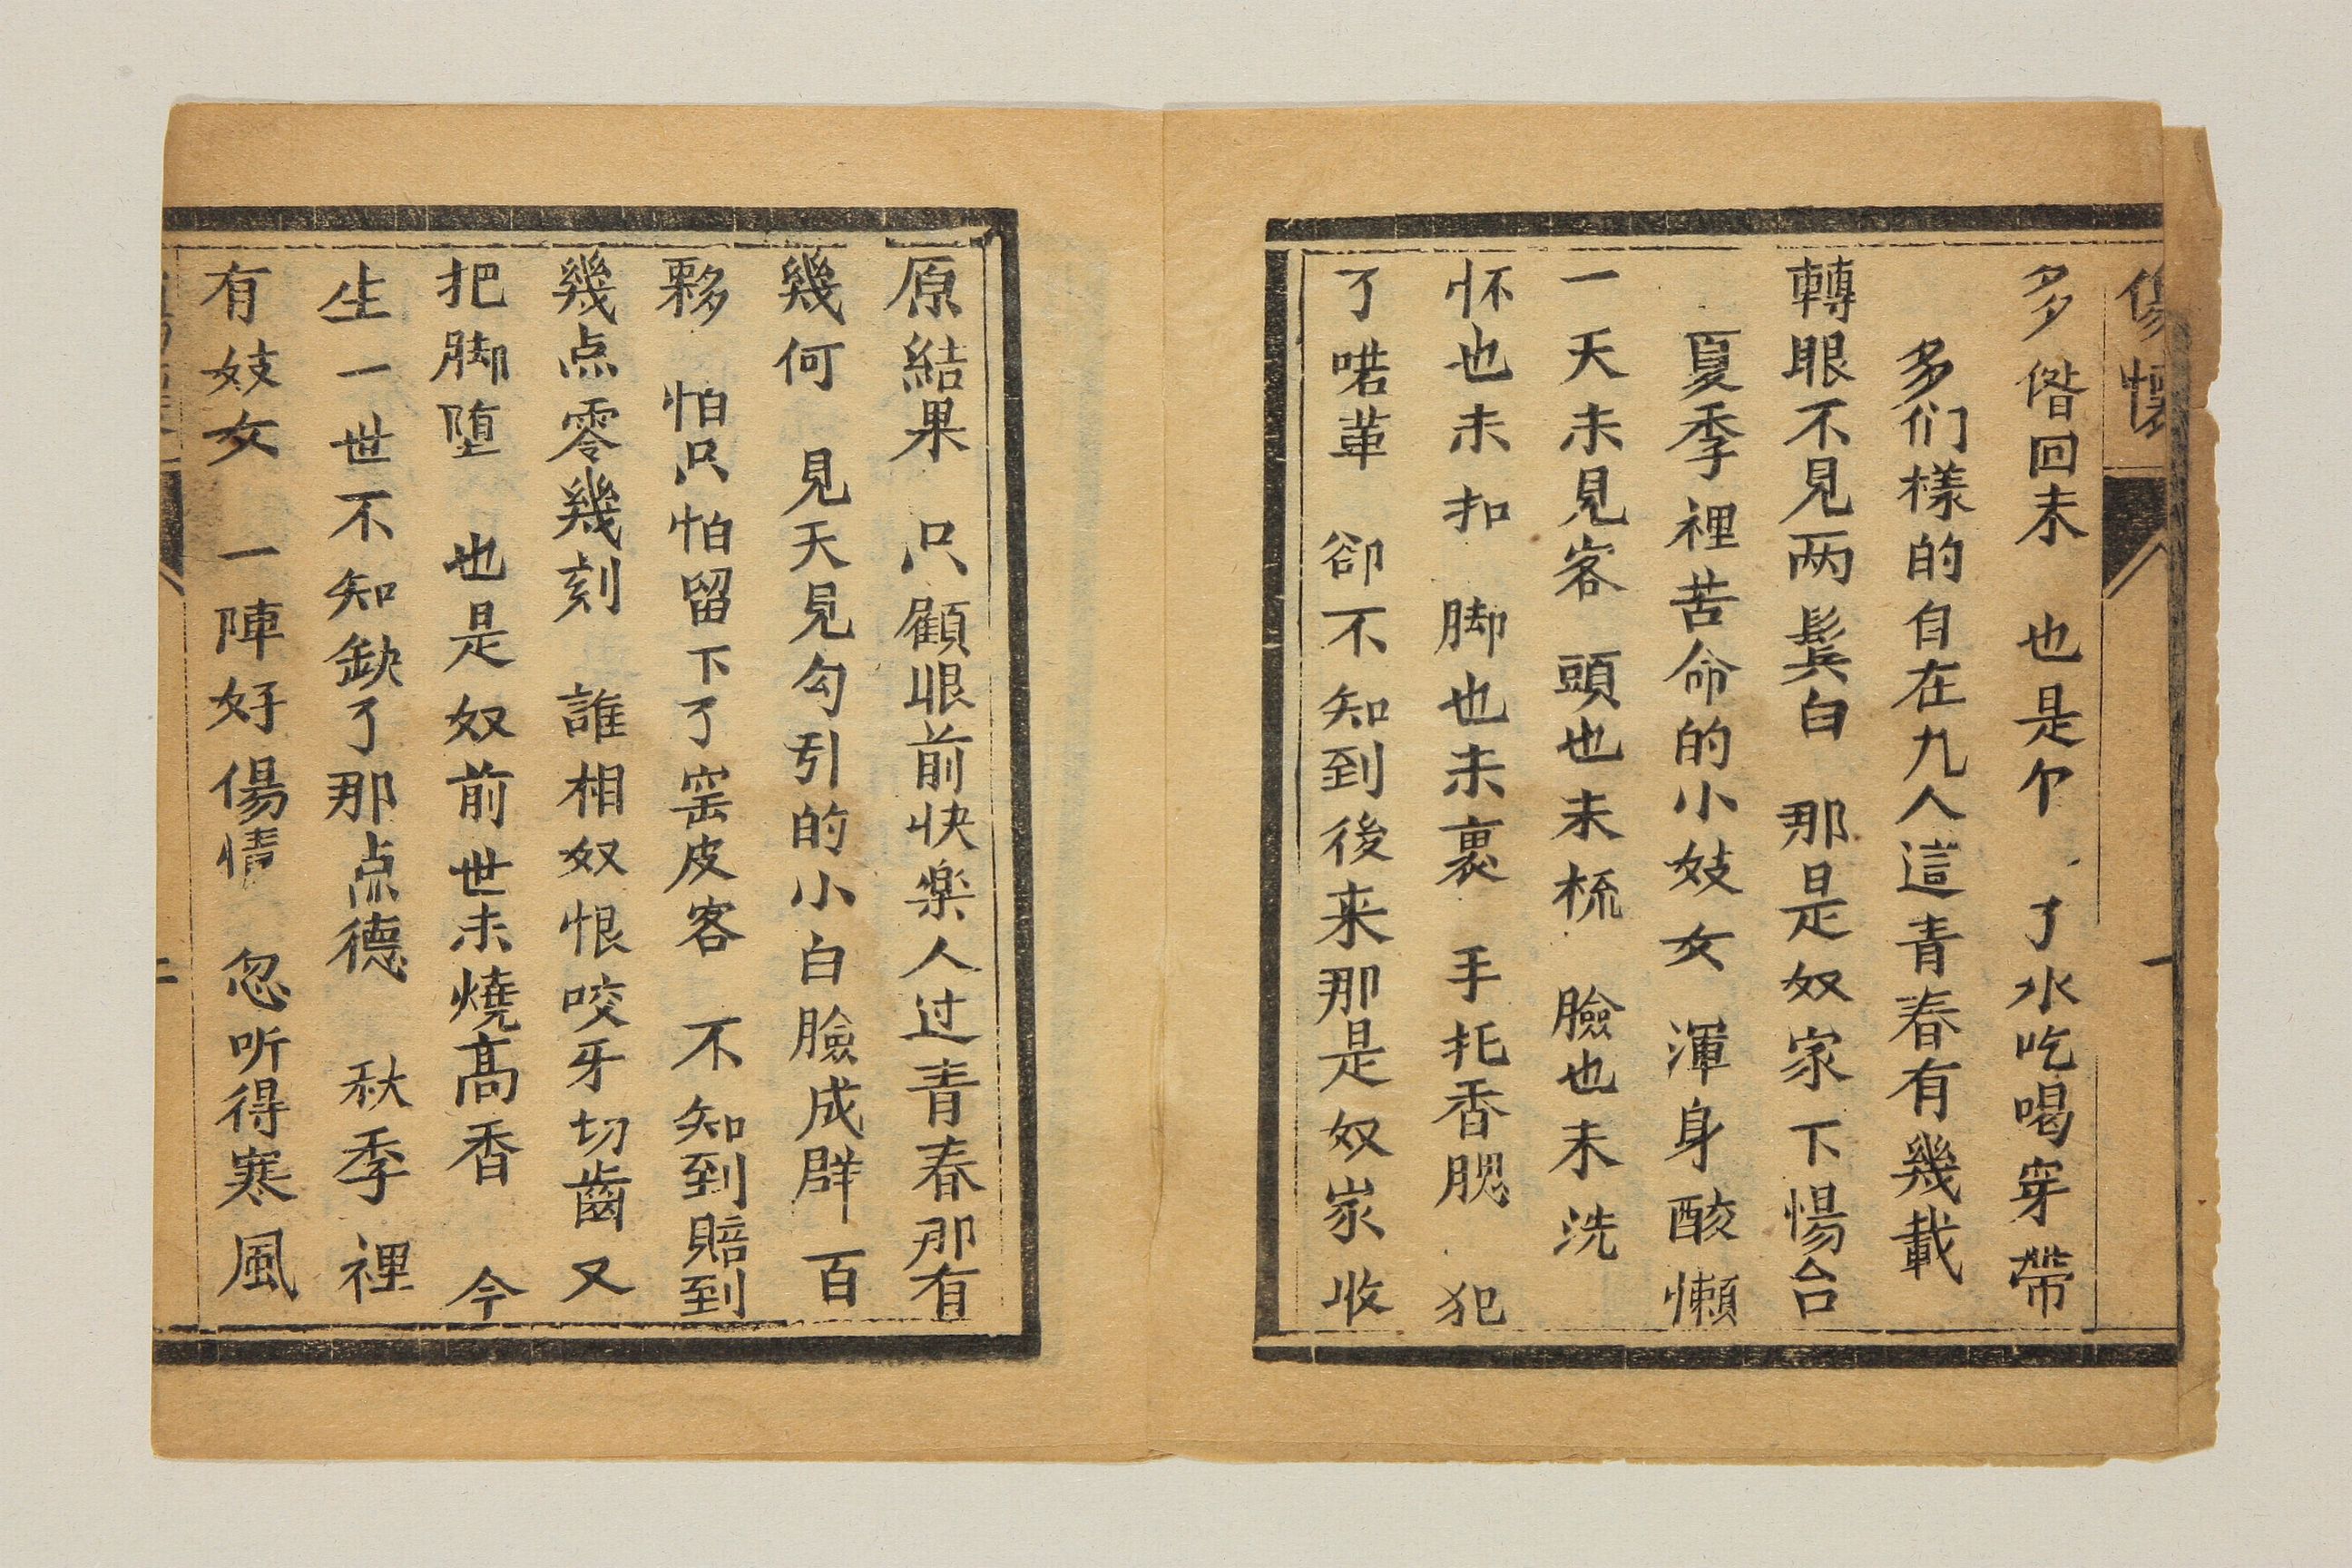 傷懷
一
多偺回来　也是个　了水吃喝穿帶
多们樣的自在九人這青春有幾載
轉眼不見两鬓白　那是奴家下惕台
夏季裡苦命的小妓女　渾身酸懒
一天未見客　頭也未梳　臉也未洗
怀也未扣　脚也未裹　手托香腮　犯
了喏革　卻不知到後来那是奴家收
原結果　只顧眼前快楽人过青春那有
幾何　見天見勾引的小白臉成群百
夥　怕只怕留下了窑皮客　不知到賠到
幾点零幾刻　誰相奴恨咬牙切齒又
把脚堕　也是奴前世未燒髙香　今
生一世不知缺了那点德　秋季裡
有妓女　一陣好傷情　忽听得寒風
二